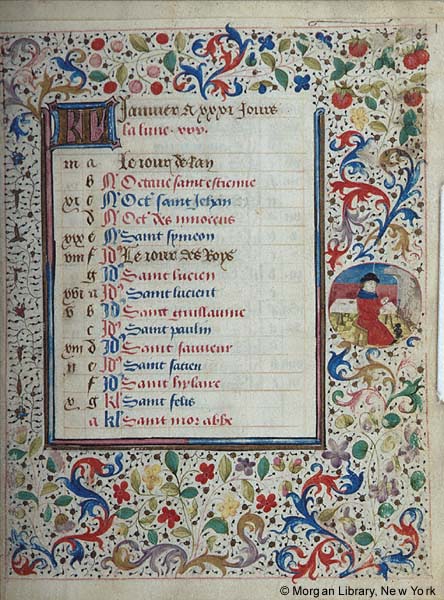 KL Januier A xxxi Jours
la lune xxx.
iii a Le iour de lan
b N Octaue saint estienne
xi c N Oct saint Jehan
d N Oct des innocens
xix e N Saint symeon
viii f N Le iour des Roys
g Id Saint lucien
xvi a Id Saint lucient
v b Id Saint guillaume
c Id Saint paulin
xiii d Id Saint sauueur
ii e Id Saint
f Id Saint hylaire
x g kl Saint felix
a kl Saint mor abbe
© Morgan Library, New York